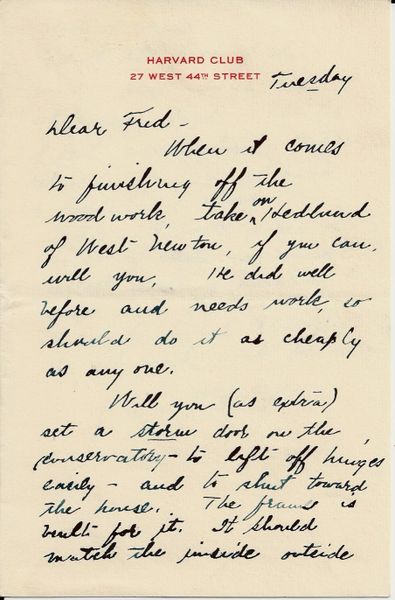 HARVARD CLUB
27 WEST 44TH STREET
Tuesday
Dear Fred -
When it comes
to finishing off the
woodwork, take on Hedlund
of West Newton, if you can,
will you. He did well
before and needs work, so
should do it as cheaply
as any one.
Will you (as extra)
set a storm door on the
conservatory - to lift off hinges
easily - and to shut toward
the house. The frame is
built for it. It should
match the inside outside